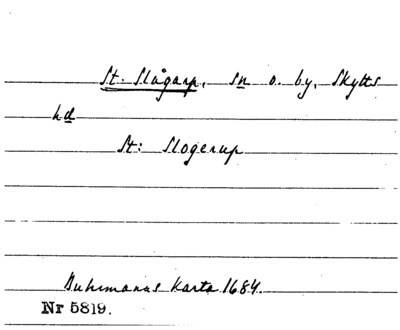 St. Slågarp, sn o. by, Skytts
hd
St: Slogerup
Buhrmanns karta 1684.
Nr 5819.